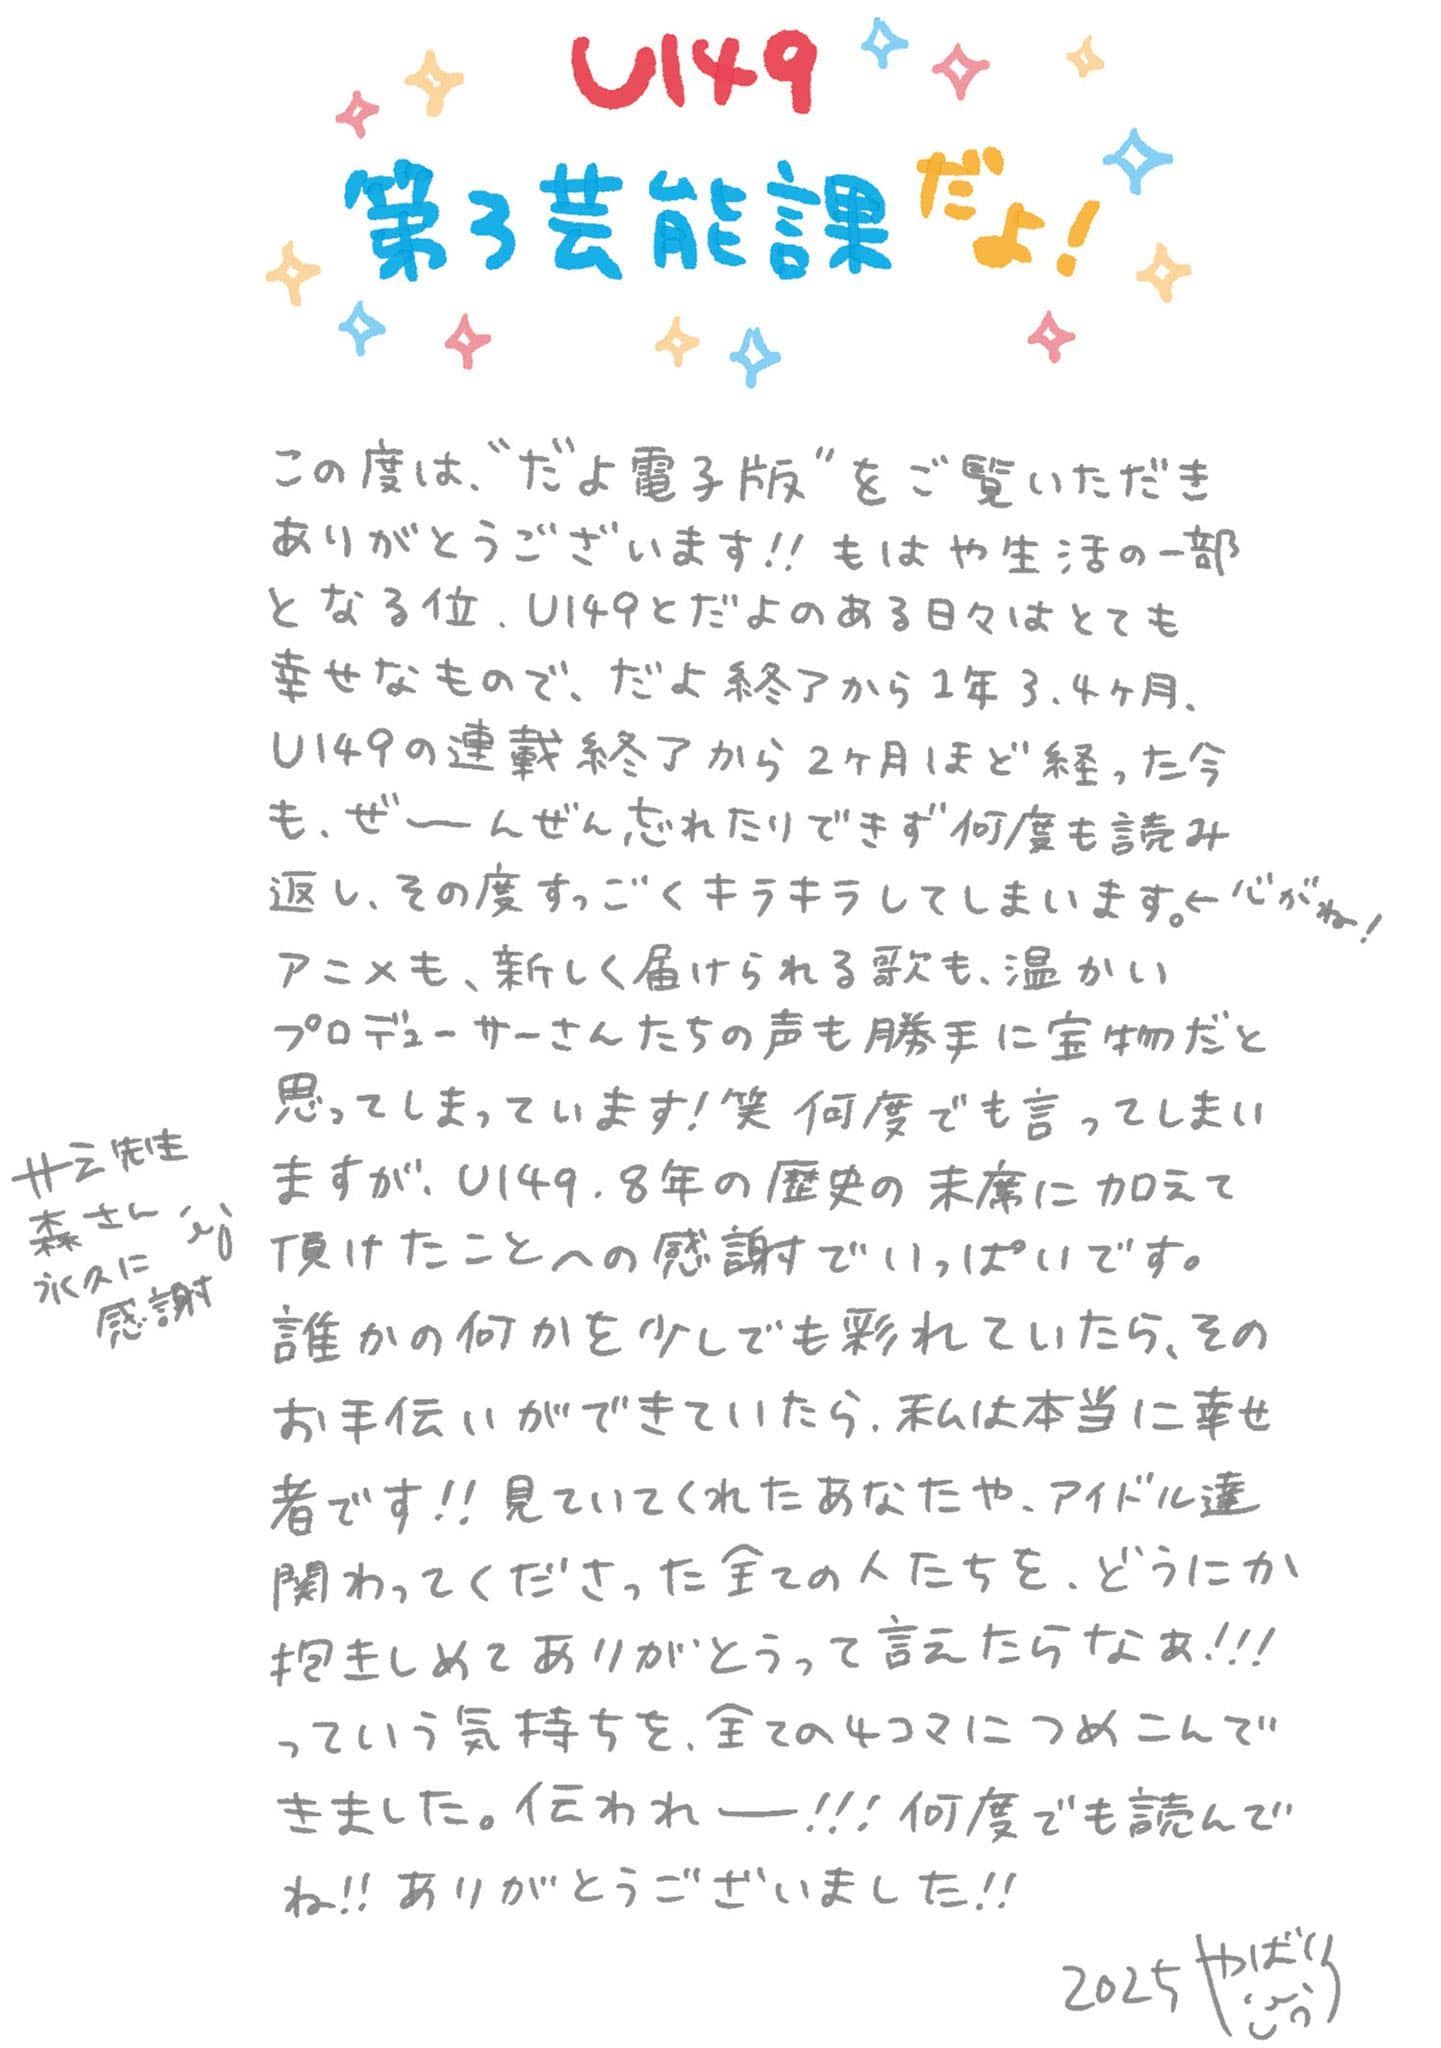 U149
第3芸能課だよ!
この度は、“だよ電子版”をご覧いただき
ありがとうございます!! もはや生活の一部
となる位、U149とだよのある日々はとても
幸せなもので、だよ終了から1年3、4ヶ月、
U149の連載終了から2ヶ月ほど経った今
も、ぜーんぜん忘れたりできず何度も読み
返し、その度すっごくキラキラしてしまいます。←心がね!
アニメも、新しく届けられる歌も、温かい
プロデューサーさんたちの声も勝手に宝物だと
思ってしまっています!笑 何度でも言ってしまい
ますが、U149、8年の歴史の末席に加えて
頂けたことへの感謝でいっぱいです。
誰かの何かを少しでも彩れていたら、その
お手伝いができていたら、私は本当に幸せ
者です!! 見ていてくれたあなたや、アイドル達
関わってくださった全ての人たちを、どうにか
抱きしめてありがとうって言えたらなぁ!!!
っていう気持ちを、全ての4コマにつめこんで
きました。伝われー!!! 何度でも読んで
ね!! ありがとうございました!!
廾之先生
森さん
永久に
感謝
2025 やばり